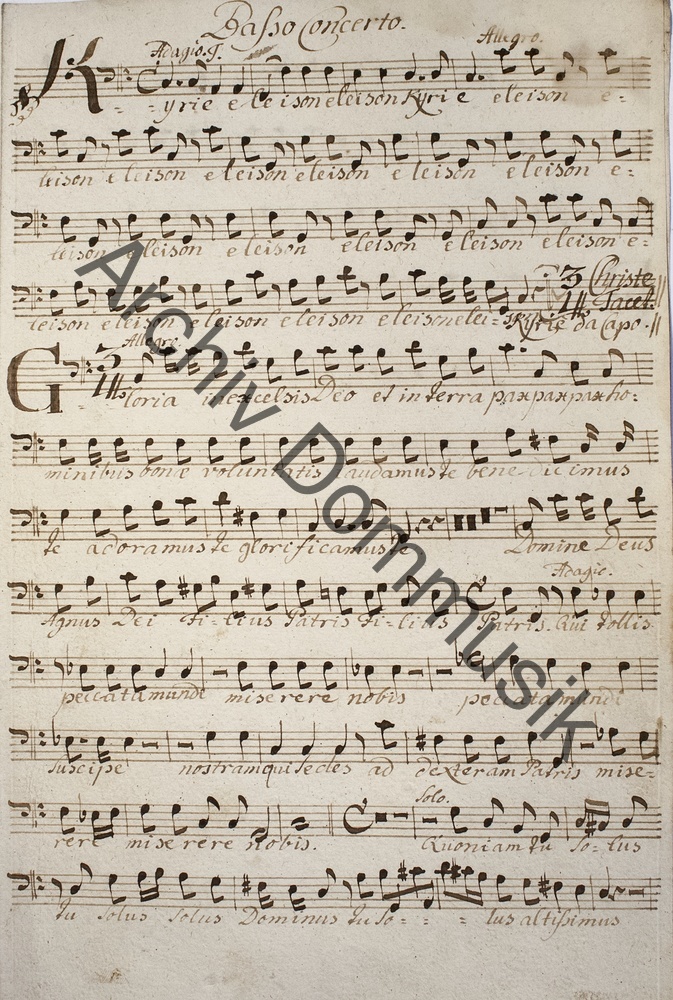 Basso Concerto.
Adagio. Allegro.
Kyrie eleison eleison Kyrie eleison e-
leison eleison eleison eleison eleison eleison e-
leison eleison eleison eleison eleison eleison e-
leison eleison eleison eleison eleison elei- Kyrie da Capo.
3 Christe
4 Tacet.
Allegro.
Gloria in excelsis Deo et in terra pax pax pax ho-
minibus bonæ voluntatis laudamus te bene dicimus
te adoramus te glorificamus te Domine Deus
Adagio.
Agnus Dei Filius Patris Filius Patris. Qui tollis
peccata mundi miserere nobis peccata mundi
suscipe nostram qui sedes ad dexteram Patris mise-
rere miserere nobis.
Solo.
Quoniam tu so-lus
tu solus solus Dominus tu so- - - lus altissimus
Archiv Dommusik